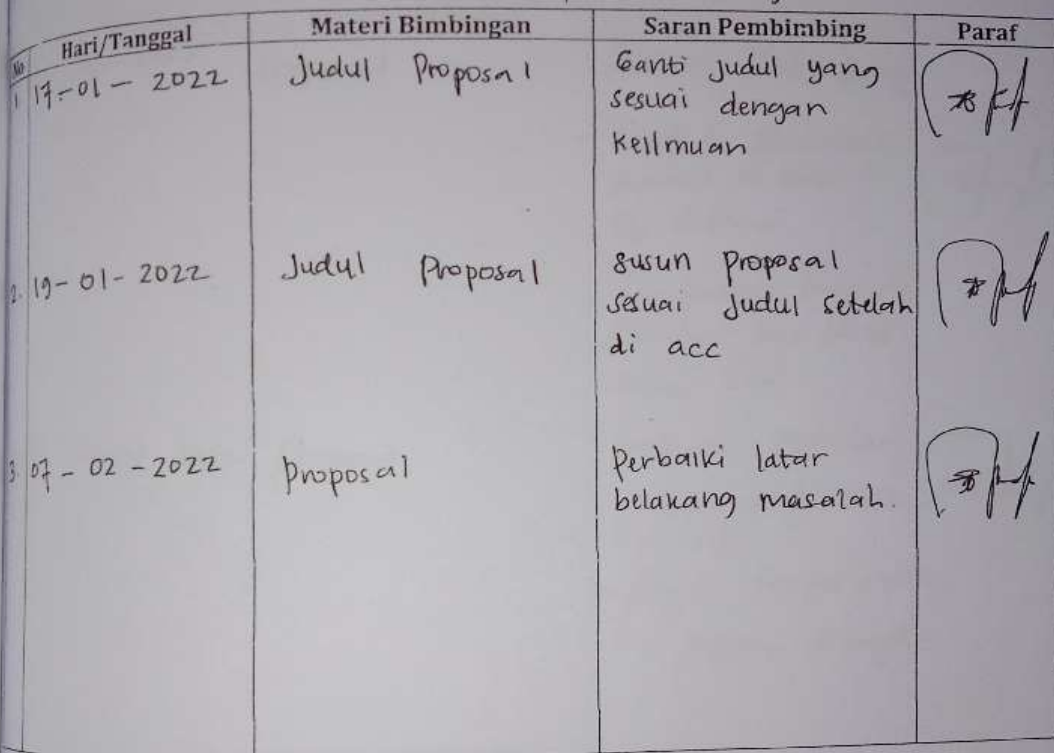 No Hari/Tanggal Materi Bimbingan Saran Pembimbing Paraf
1. 17-01-2022 Judul Proposal Ganti judul yang
sesuai dengan
keilmuan
2. 19-01-2022 Judul Proposal susun proposal
sesuai Judul setelah
di acc
3. 07-02-2022 proposal Perbaiki latar
belakang masalah.